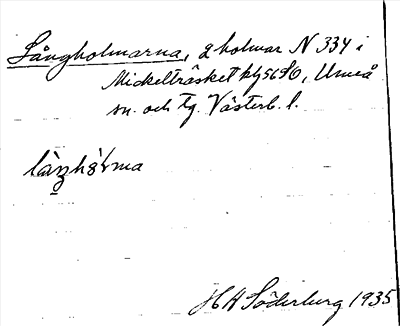 Långholmarna, 2 holmar N 334 i
Mickelträsket kbl 56 SO, Umeå
sn. och tg. Västerb. l.
H H Söderburg 1935